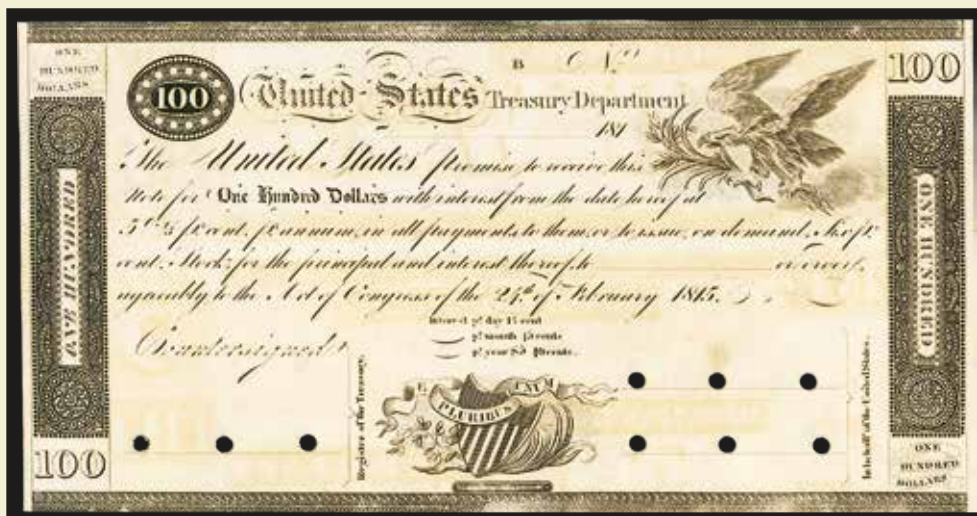 ONE
HUNDRED
DOLLARS
100
B No.
100
United States Treasury Department
181
The United States promise to receive this
Note for One Hundred Dollars with interest from the date hereof at
per cent. per annum, in all payments to them, or to issue, on demand, Six per
cent. Stock, for the principal and interest thereof, to or order,
agreeably to the Act of Congress of the 24th of February 1815.
Interest pr day 1½ cent
pr month 45 cents
pr year
Countersigned
ONE HUNDRED
Register of the Treasury.
E PLURIBUS UNUM
In behalf of the United States.
ONE HUNDRED
100
ONE
HUNDRED
DOLLARS